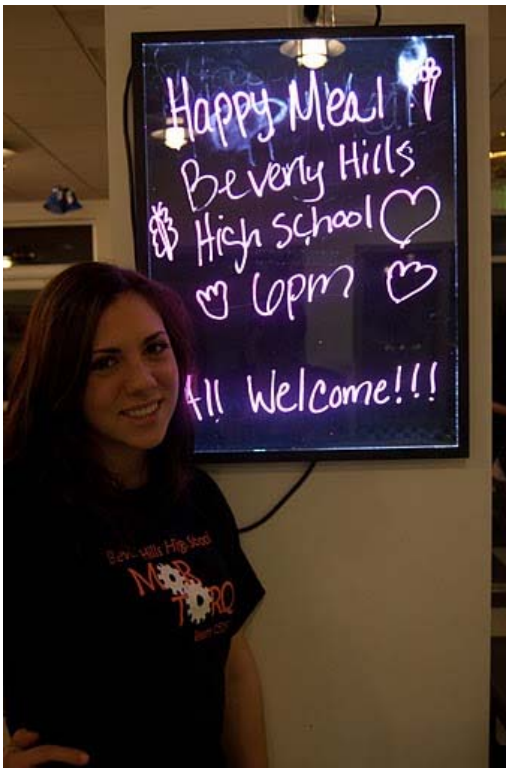 Happy Meal
Beverly Hills
High School
6pm
All Welcome!!!
Bev. Hills High School
M R
T RQ